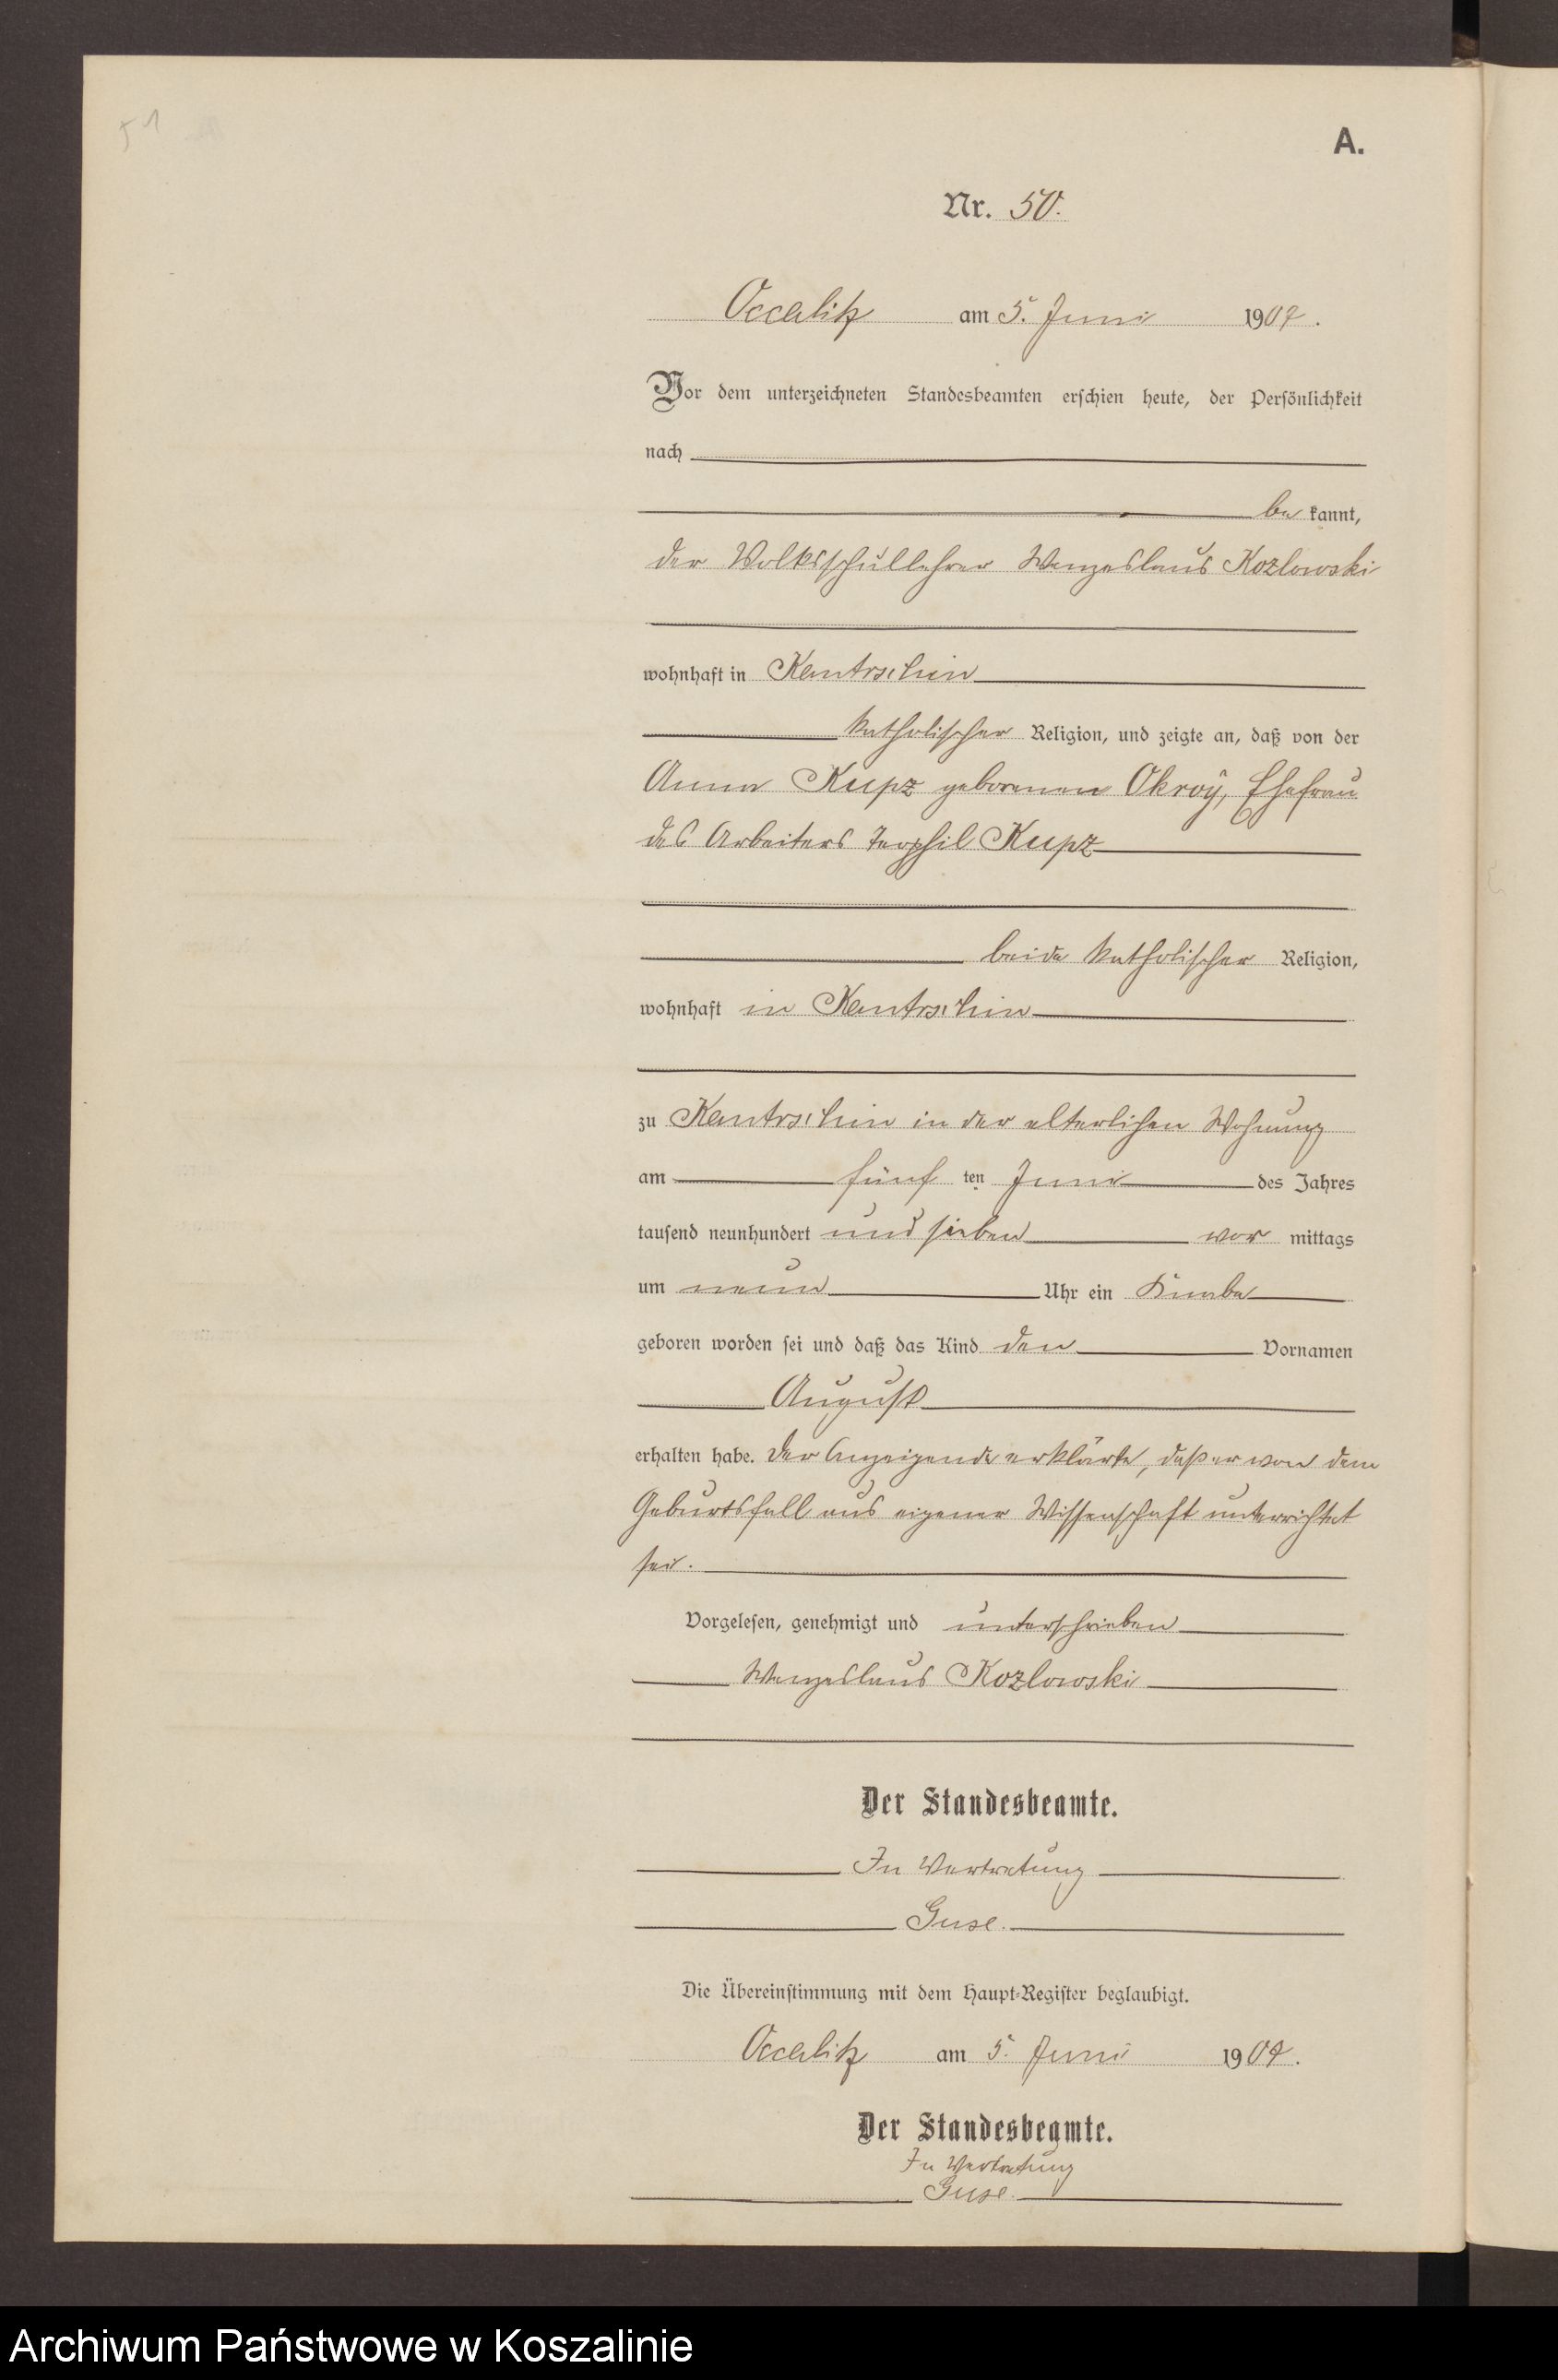 51
A.
Nr. 50.
Occalitz am 5. Juni 1907.
Vor dem unterzeichneten Standesbeamten erschien heute, der Persönlichkeit
nach
be kannt,
der Volksschullehrer Wenzeslaus Kozlowski
wohnhaft in Kantrschin
katholischer Religion, und zeigte an, daß von der
Anna Kupz geborenen Okroÿ, Ehefrau
des Arbeiters Teophil Kupz
beide katholischer Religion,
wohnhaft in Kantrschin
zu Kantrschin in der elterlichen Wohnung
am fünf ten Juni des Jahres
tausend neunhundert und sieben vor mittags
um neun Uhr ein Knabe
geboren worden sei und daß das Kind den Vornamen
August
erhalten habe. Der Anzeigende erklärte, daß er von dem
Geburtsfall aus eigener Wissenschaft unterrichtet
sei.
Vorgelesen, genehmigt und unterschrieben
Wenzeslaus Kozlowski
Der Standesbeamte.
In Vertretung
Guse.
Die Übereinstimmung mit dem Haupt-Register beglaubigt.
Occalitz am 5. Juni 1907.
Der Standesbeamte.
In Vertretung
Guse.
Archiwum Państwowe w Koszalinie